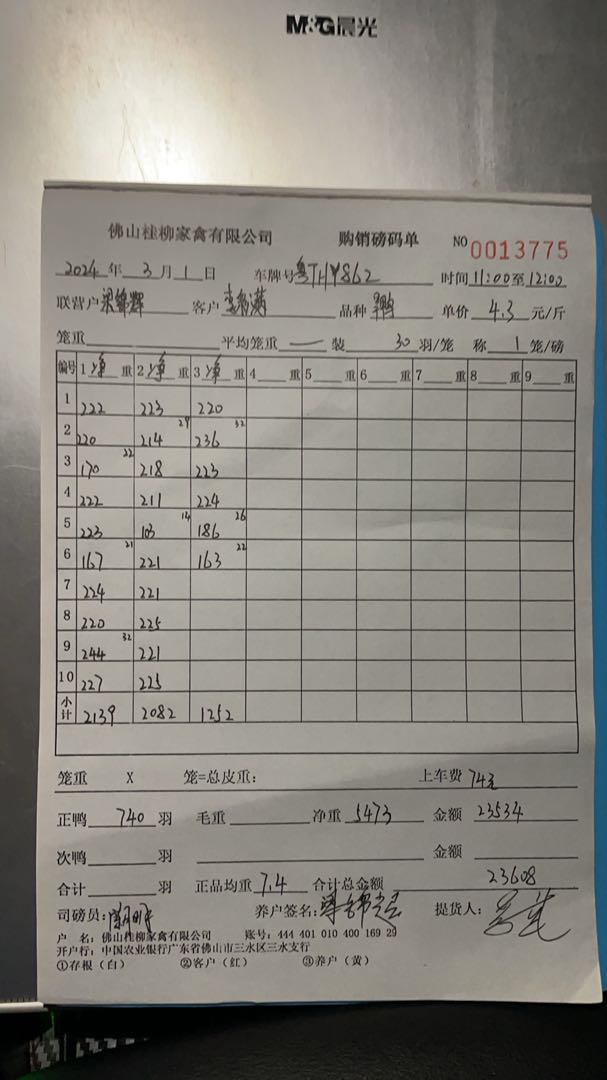 M&G晨光
佛山桂柳家禽有限公司 购销磅码单 NO 0013775
2024年3月1日 车牌号粤THY862 时间11:00至12:00
联营户梁锦辉 客户 品种 鸭 单价 4.3 元/斤
笼重 平均笼重 — 装 30 羽/笼 称 1 笼/磅
编号 1净重 2净重 3净重 4重 5重 6重 7重 8重 9重
1 222 223 220
2 220 214 29 236 32
3 170 22 218 223
4 222 211 224
5 223 103 14 186 26
6 167 21 221 163 22
7 224 221
8 220 225
9 244 32 221
10 227 225
小计 2139 2082 1252
笼重 X 笼=总皮重: 上车费 74元
正鸭 740 羽 毛重 净重 5473 金额 23534
次鸭 羽 金额
合计 羽 正品均重 7.4 合计总金额 23608
司磅员: 养户签名: 提货人:
户 名: 佛山桂柳家禽有限公司 账号: 444 401 010 400 169 29
开户行: 中国农业银行广东省佛山市三水区三水支行
①存根（白） ②客户（红） ③养户（黄）